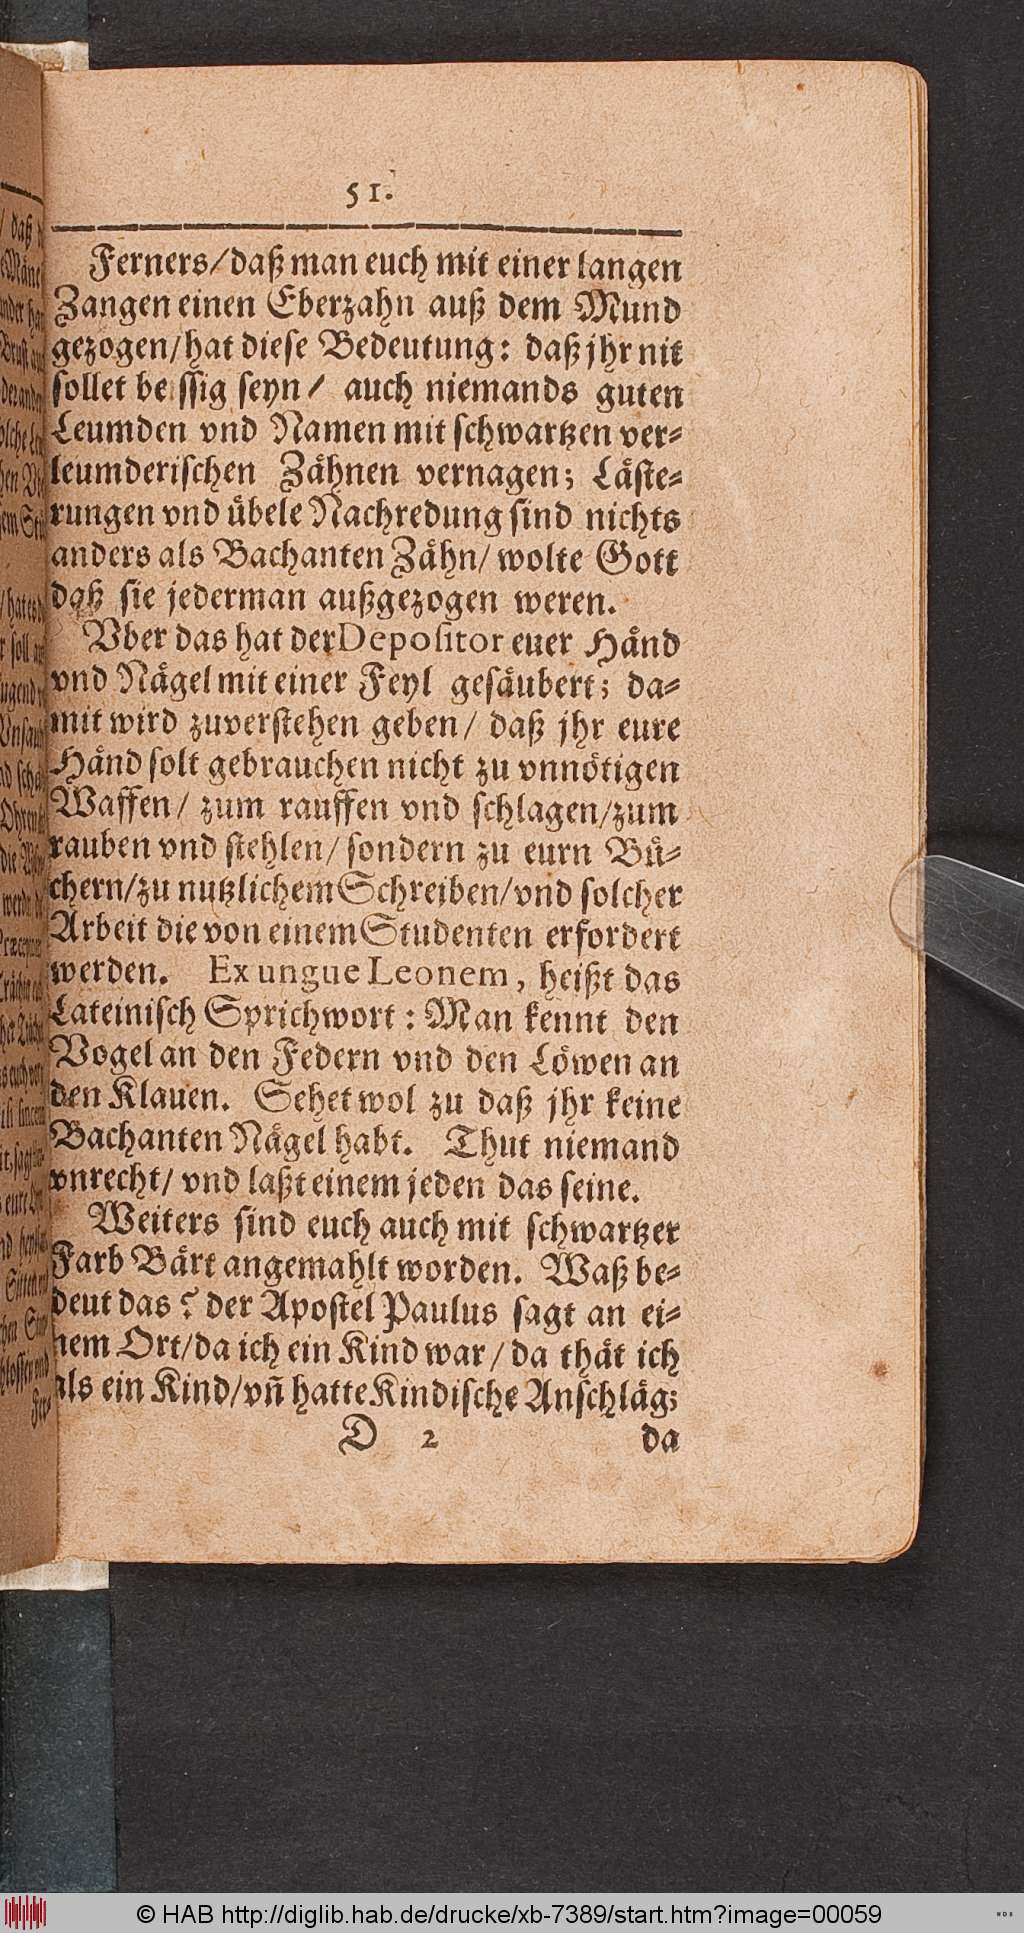 51.
Ferners/daß man euch mit einer langen
Zangen einen Eberzahn auß dem Mund
gezogen/hat diese Bedeutung: daß jhr nit
sollet be ssig seyn/ auch niemands guten
Leumden vnd Namen mit schwartzen ver-
leumderischen Zähnen vernagen; Läste-
rungen vnd übele Nachredung sind nichts
anders als Bachanten Zähn/ wolte Gott
daß sie jederman außgezogen weren.
Vber das hat der Depositor euer Händ
vnd Nägel mit einer Feyl gesäubert; da-
mit wird zuverstehen geben/ daß jhr eure
Händ solt gebrauchen nicht zu vnnötigen
Waffen/ zum rauffen vnd schlagen/zum
rauben vnd stehlen/ sondern zu eurn Bü-
chern/zu nutzlichem Schreiben/vnd solcher
Arbeit die von einem Studenten erfordert
werden. Ex ungue Leonem, heißt das
Lateinisch Sprichwort: Man kennt den
Vogel an den Federn vnd den Löwen an
den Klauen. Sehet wol zu daß jhr keine
Bachanten Nägel habt. Thut niemand
vnrecht/ vnd laßt einem jeden das seine.
Weiters sind euch auch mit schwartzer
Farb Bärt angemahlt worden. Waß be-
deut das? der Apostel Paulus sagt an ei-
nem Ort/da ich ein Kind war/da thät ich
als ein Kind/vñ hatte Kindische Anschläg;
D 2 da
© HAB http://diglib.hab.de/drucke/xb-7389/start.htm?image=00059